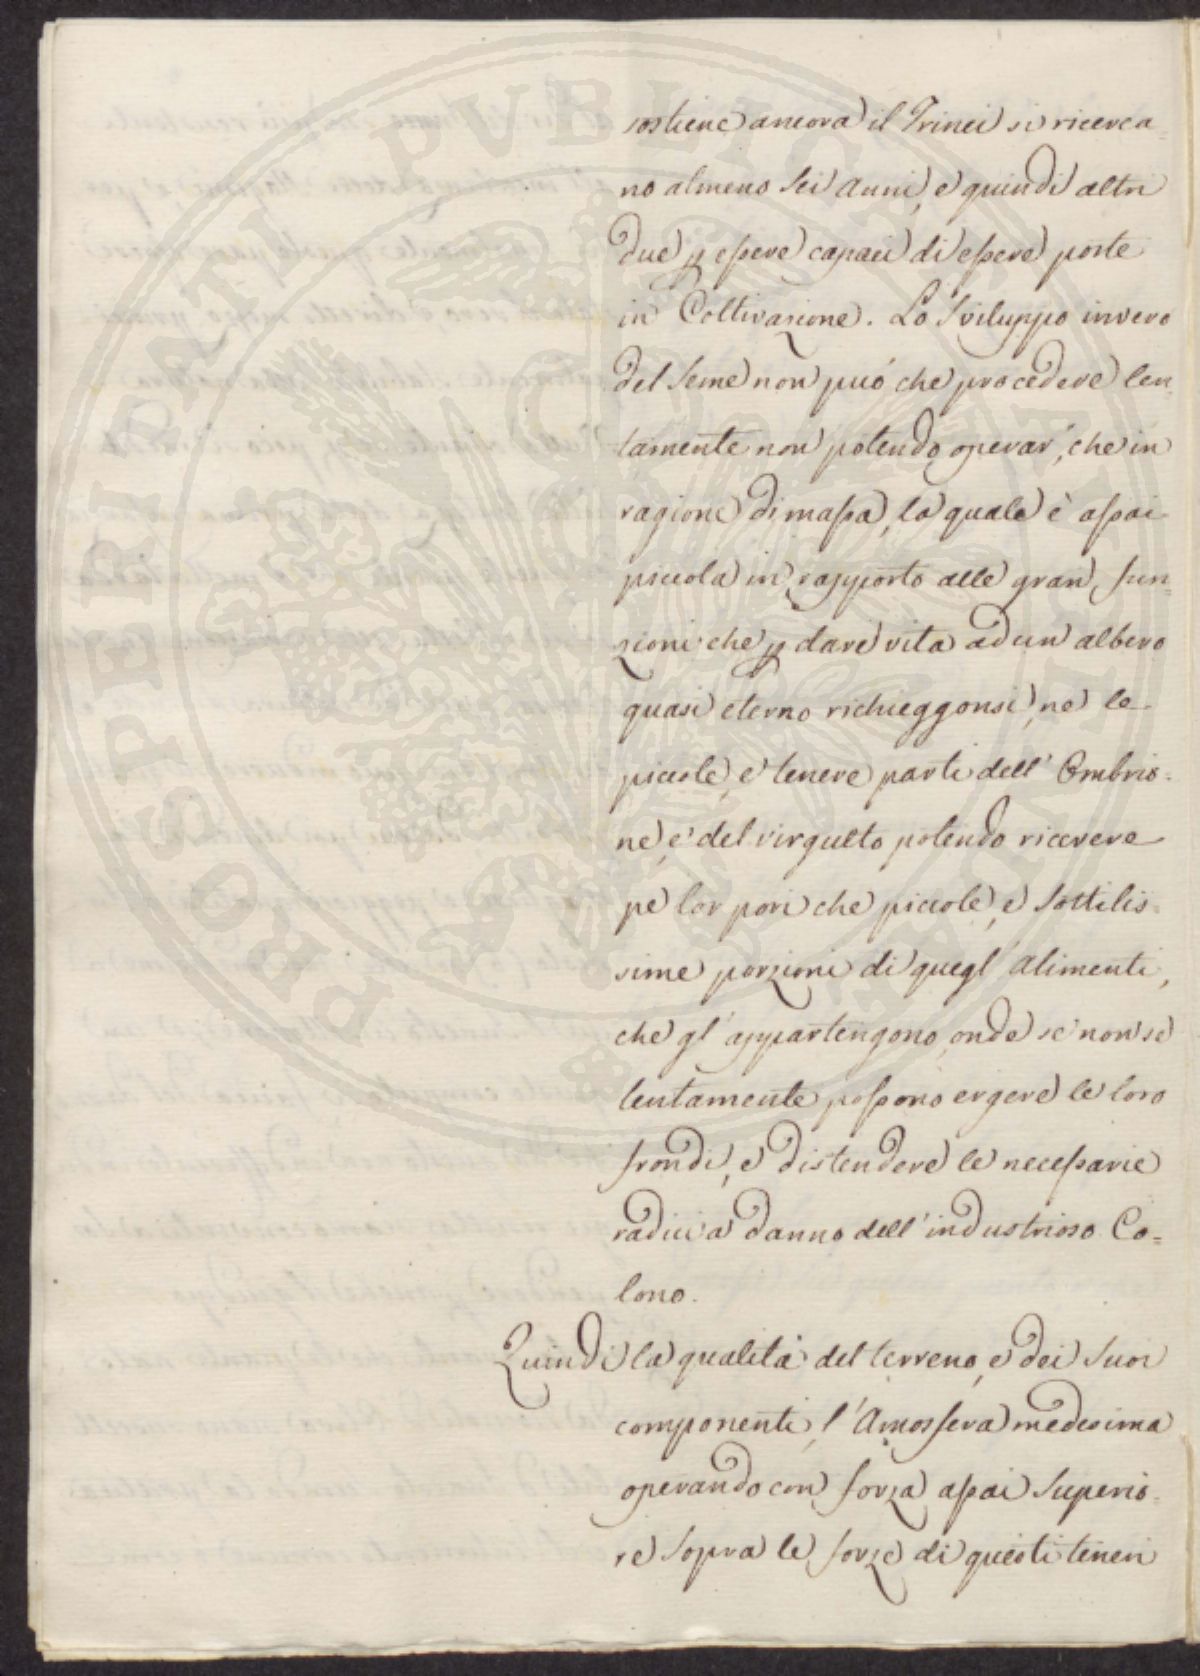 sostiene ancora il Trinci si ricerca-
no almeno sei anni, e quindi altri
due p essere capaci di essere poste
in Coltivazione. Lo Sviluppo invero
del Seme non puó che procedere len-
tamente non potendo operar', che in
ragione di massa, la quale è assai
piccola in rapporto alle gran fun-
zioni che p dare vita ad un albero
quasi eterno richieggonsi, ne le
piccole, e tenere parti dell' Embrio-
ne, e del virgulto potendo ricevere
pe lor pori che piccole, e Sottilis-
sime porzioni di quegl' alimenti,
che gl' appartengono, onde se non se
lentamente possono ergere le loro
frondi, e distendere le necessarie
radici a danno dell' industrioso Co=
lono.
Quindi la qualità del terreno, e dei Suoi
componenti, l' Amosfera medesima
operando con forza assai Superio-
re sopra le forze di questi teneri
PROSPERITATI PVBLICAE AVGENDAE